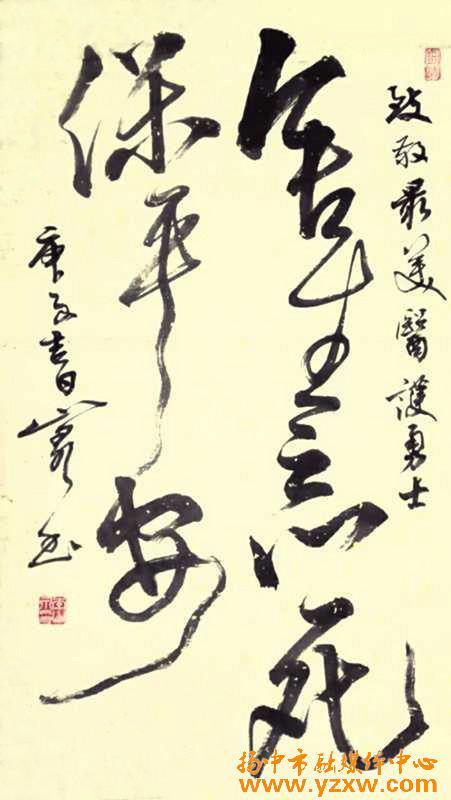 致敬最美醫護勇士
舍生忘死
保平安
庚子吉日
扬中市融媒体中心
www.yzxw.com